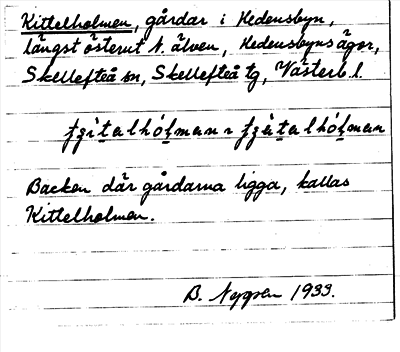 Kittelholmen, gårdar i Hedensbyn,
längst österut N. älven, Hedensbyns ägor,
Skellefteå sn, Skellefteå tg, Västerb. l.
Backen där gårdarna ligga, kallas
Kittelholmen.
B. Nygren 1933.